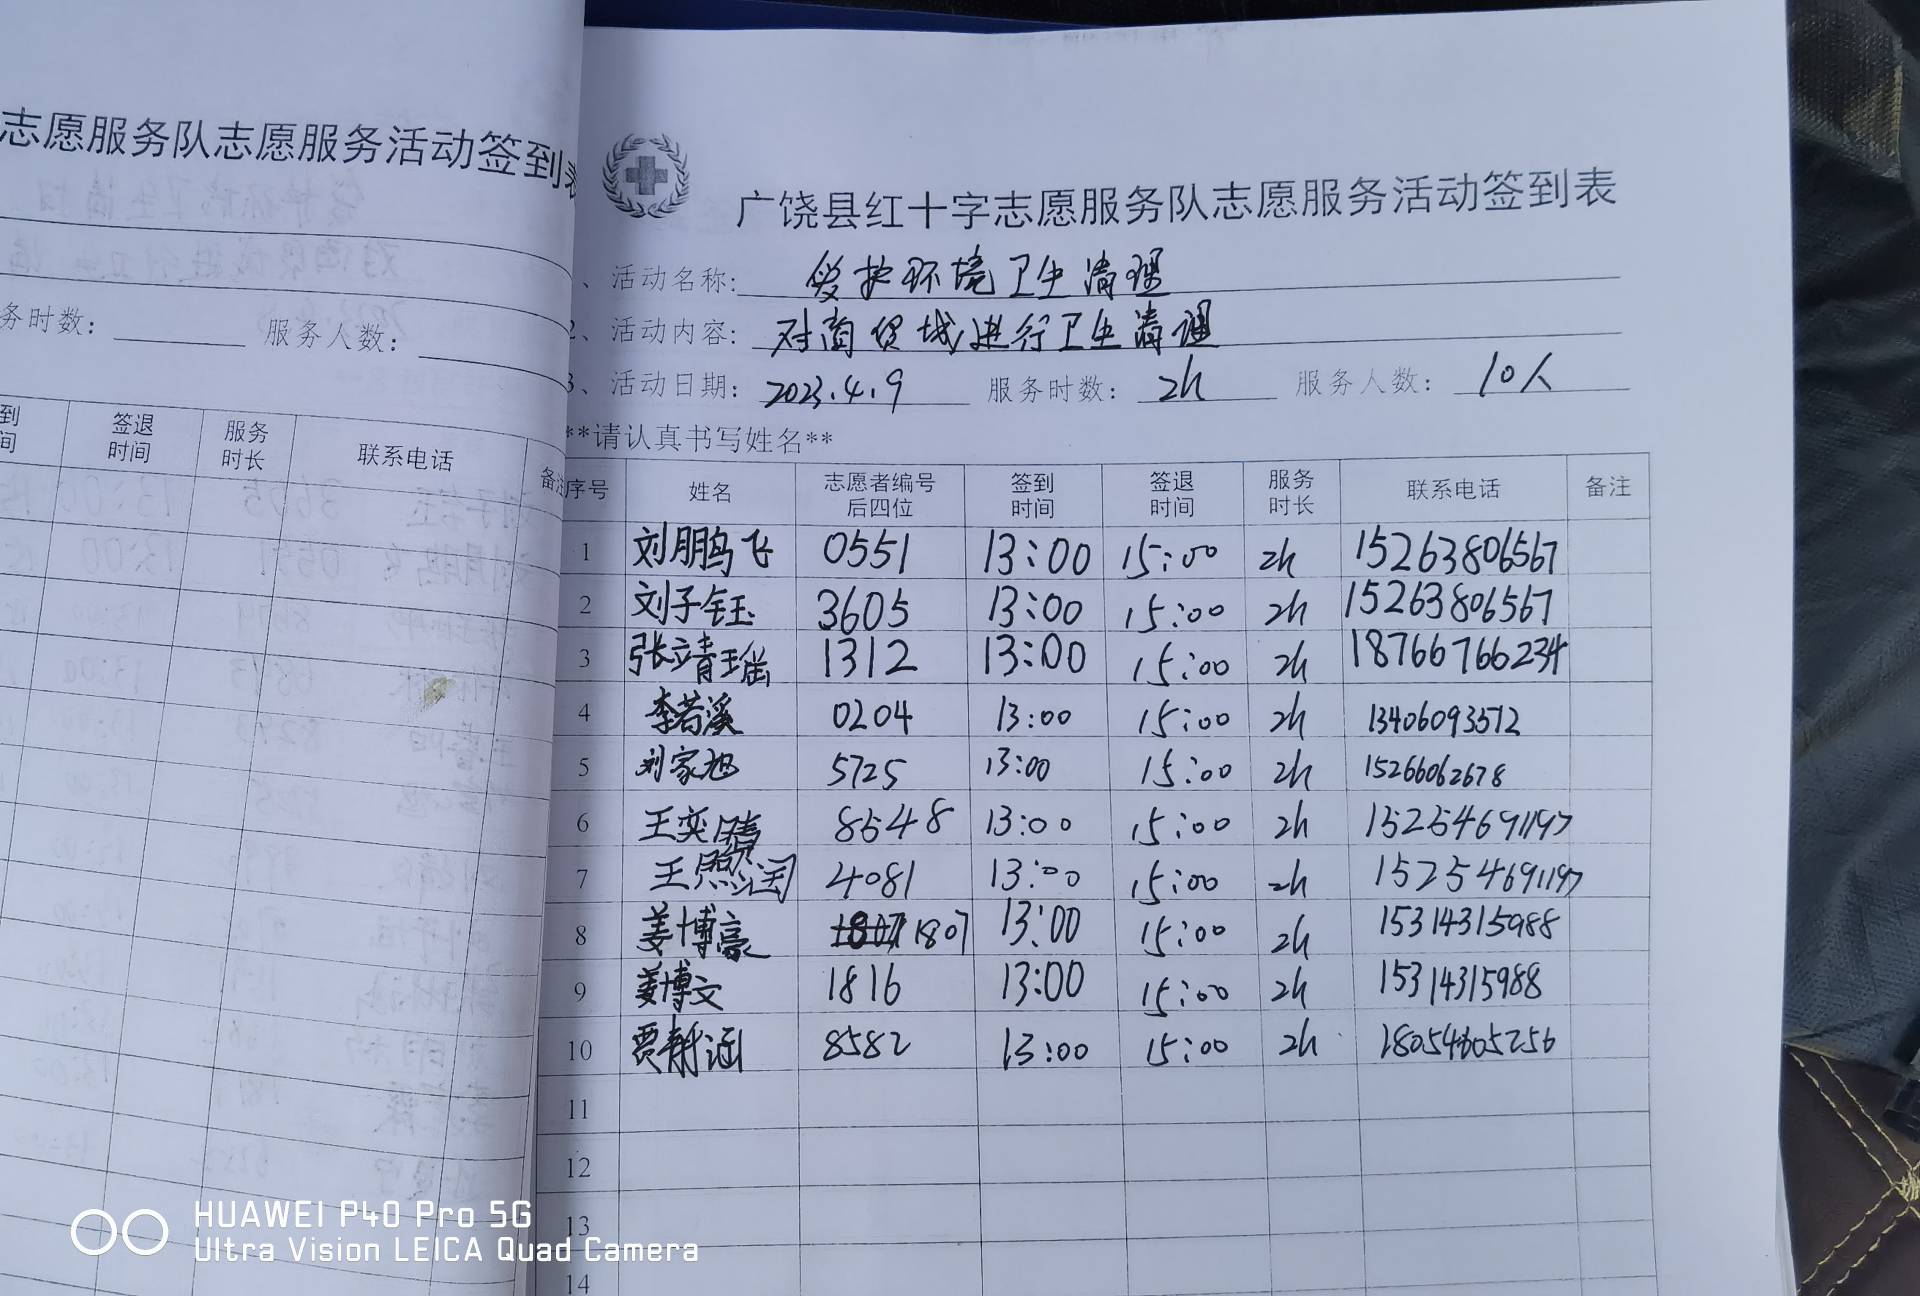 志愿服务队志愿服务活动签到表
务时数: 服务人数:
签退时间 服务时长 联系电话 备注
广饶县红十字志愿服务队志愿服务活动签到表
、活动名称: 爱护环境卫生清理
2、活动内容: 对商贸城进行卫生清理
3、活动日期: 2023.4.9 服务时数: 2h 服务人数: 10人
**请认真书写姓名**
序号 姓名 志愿者编号后四位 签到时间 签退时间 服务时长 联系电话 备注
1 刘鹏飞 0551 13:00 15:00 2h 15263806567
2 刘子钰 3605 13:00 15:00 2h 15263806567
3 张靖瑶 1312 13:00 15:00 2h 18766766234
4 李若溪 0204 13:00 15:00 2h 13406093572
5 刘家旭 5725 13:00 15:00 2h 15266062678
6 王奕晴 8548 13:00 15:00 2h 15254691197
7 王熙润 4081 13:00 15:00 2h 15254691197
8 姜博豪 1807 13:00 15:00 2h 15314315988
9 姜博文 1816 13:00 15:00 2h 15314315988
10 贾静涵 8582 13:00 15:00 2h 18054605256
11
12
13
14
HUAWEI P40 Pro 5G
Ultra Vision LEICA Quad Camera